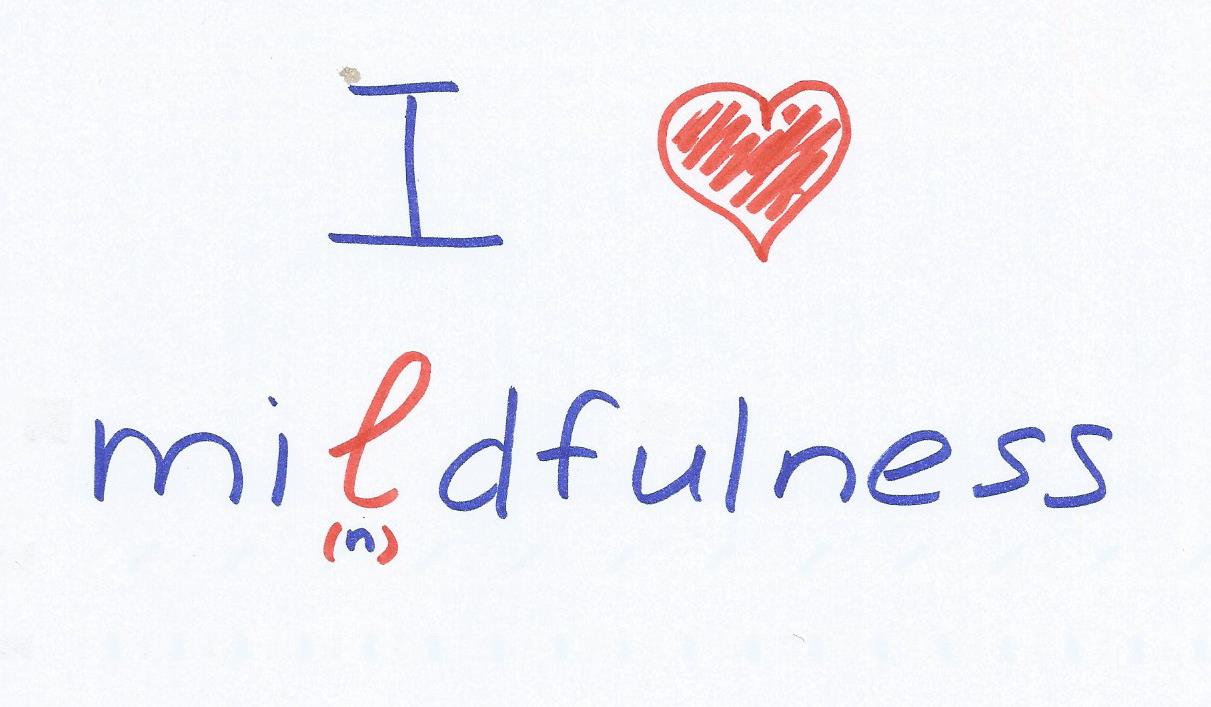 I ❤
mildfulness
(n)